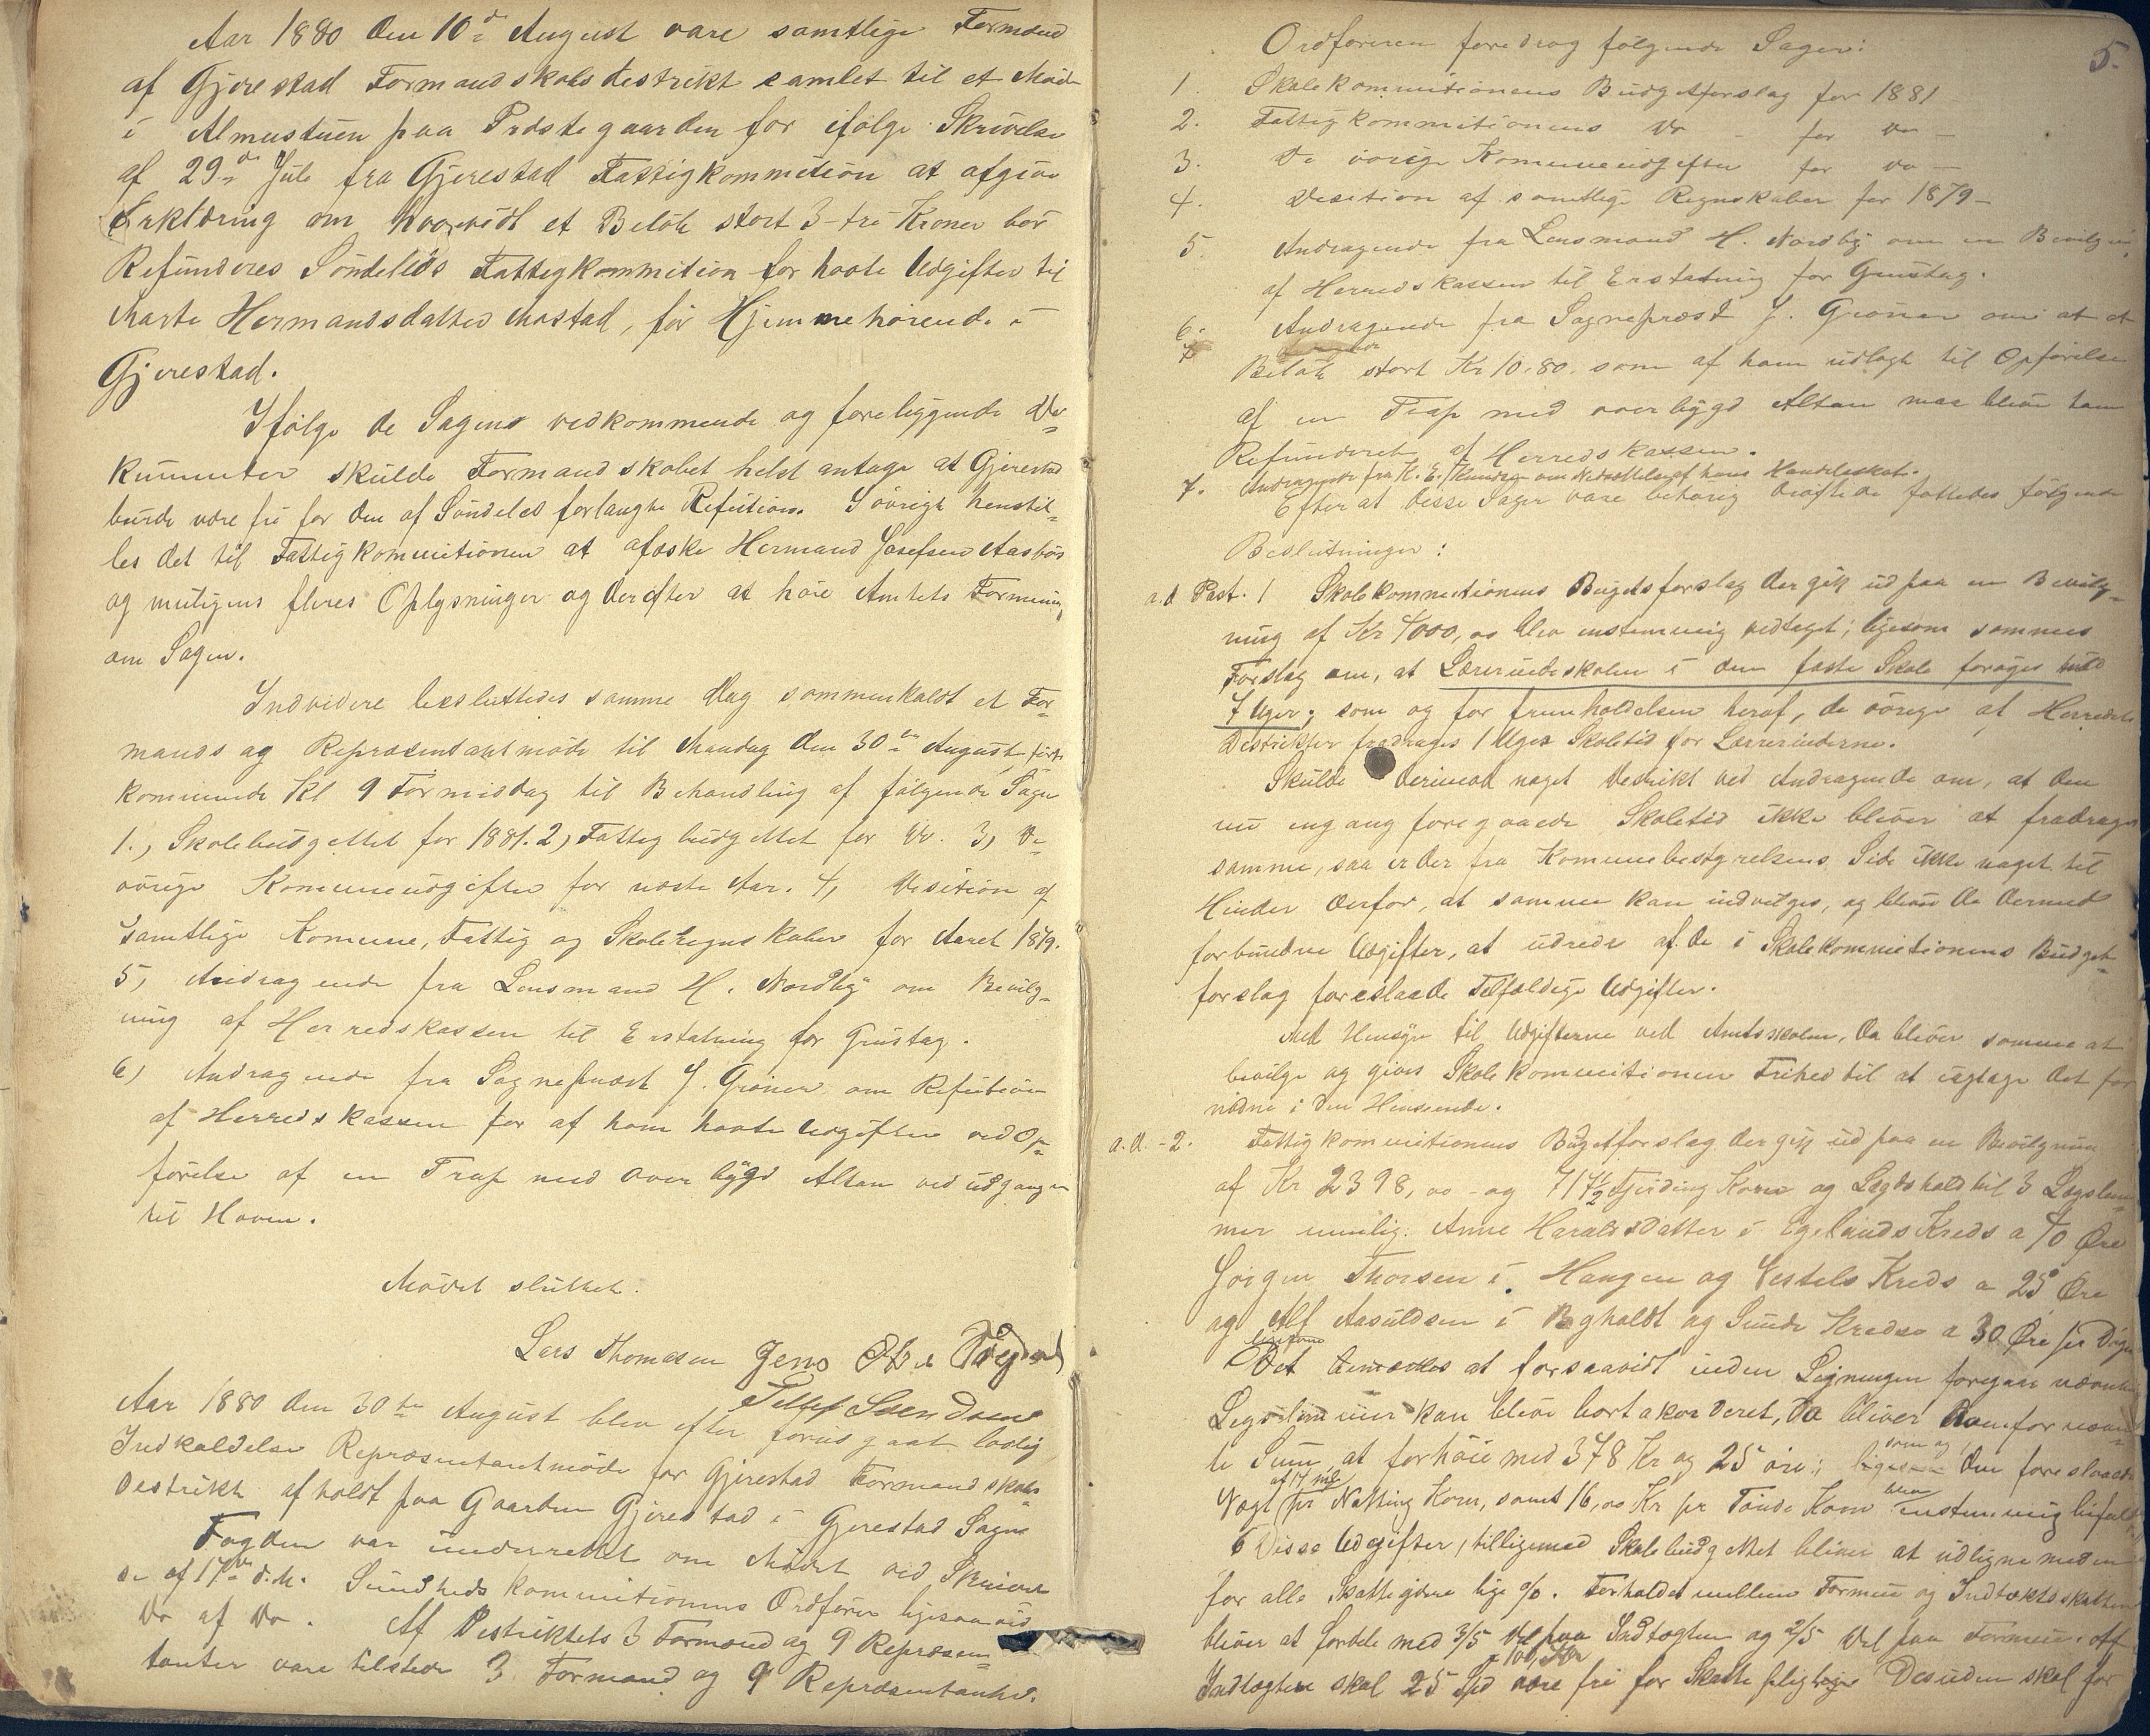 Aar 1880 den 10de August vare samtlige Formænd
af Gjerestad Formandskabs destrikt samlet til et Møde
i Almustuen paa Præstegaarden for ifølge Skrivelse
af 29de Juli fra Gjerestad Fattigkommition at afgive
Erklæring om hvorvidt et Beløb stort 3 - tre Kroner bør
Refunderes Søndeleds Fattigkommition for havte Udgifter til
Marte Hermandsdatter Mostad, før Hjemmehørende i
Gjerestad.
Ifølge de Sagens vedkommende og foreliggende Do-
kumenter skulde Formandskabet helst antage at Gjerestad
burde være fri for den af Søndeled forlangte Refution. I øvrigt henstil-
les det til Fattigkommitionen at afæske Hermand Josefsen Aasbøs
og muligens fleres Oplysninger og derefter at høre Amtets Formening
om Sagen.
Indvidere besluttedes samme Dag sammenkaldt et For-
mands og Repræsentantmøde til Mandag den 30te August først-
kommende Kl 9 Formiddag til Behandling af følgende Sager
1., Skolebudgettet for 1881. 2, Fattigbudgettet for Do. 3, De
øvrige Komuneudgifter for næste Aar. 4, Desition af
samtlige Komune, Fattig og Skoleregnskaber for Aaret 1879.
5, Andragende fra Lensmand H. Nordby om Bevilg-
ning af Herredskassen til Erstatning for Grustag.
6, Andragende fra Sogneprest J. Grøner om Refution
af Herredskassen for af ham havte Udgifter ved Op-
førelse af en Trap med overbygd Altan ved udgangen
til Haven.
Mødet sluttet.
Lars Thomasen Jens
Tellef Svendsen
Aar 1880 den 30te August blev efter forudgaat lovlig
Indkaldelse Repræsentantmøde for Gjerestad Formandskabs-
Destrikt afholdt paa Gaarden Gjerestad i Gjerestad Sogn
Fogden var underrettet om Mødet ved Skrivel-
se af 17de d.M. Sundhedskommitionens Ordfører ligesaa ved
Do af Do. Af Destriktets 3 Formænd og 9 Repræsen-
tanter vare tilstede 3 Formænd og 9 Repræsentanter.
5.
Ordføreren foredrog følgende Sager:
1. Skolekommitionens Budgetforslag for 1881
2. Fattigkommitionens Do - for Do -
3. De øvrige Komuneudgifter for Do -
4. Desition af samtlige Regnskaber for 1879 -
5. Andragende fra Lensmand H. Nordby om en Bevilgning
af Herredskassen til Erstatning for Grustag.
6. Andragende fra Sogneprest J. Grøner om at et
Beløb stort Kr 10.80. som af ham udlagt til Opførelse
af en Trap med overbygd Altan maa blive ham
Refunderet af Herredskassen.
7. Andragende fra K. E. Knudsen om Nedsættelse af hans Handelsskat.
Efter at disse Sager vare behørig drøftede fattedes følgende
Beslutninger:
a.d Post. 1 Skolekommitionens Bugetsforslag der gik ud paa en Bevilg-
ning af Kr 4000,00 blev enstemmig vedtaget; ligesom sammes
Forslag om, at Lærerindeskolen i den faste Skole forøges med
7 Uger; som og for fremholdelsen heraf, de øvrige af Herredets
Destrikter fradrages 1 Uges Skoletid for Lærerinderne.
Skulde derimod noget Destrikt ved Andragende om, at den
nu engang foregaaede Skoletid ikke bliver at fradrages
samme, saa er der fra Komunebestyrelsens Side ikke noget til
Hinder derfor, at samme kan indvilges, og blive de dermed
forbundne Udgifter, at udrede af de i Skolekommitionens Budget-
forslag foreslaaede Tilfældige Udgifter.
Med Hensyn til Udgifterne ved Amtsskolen, da bliver samme at
bevilge og gives Skolekommitionen Frihed til at iagtage det for
nødne i den Henseende.
a.d. - 2. Fattigkommitionens Bugetforslag der gik ud paa en Bevilgning
af Kr 2398,00 - og 717½ Fjerding Korn og Lægdshold til 3 Lægslem-
mer nemlig: Anne Haraldsdatter i Egelands Kreds a 70 Øre
Jørgen Thorsen i Haugen og Vestels Kreds a 25 Øre
og Alf Aasuldsen i Bøgholdt og Sunde Kredse a 30 Øre pr Dag
Det bemærkes at forsaavidt inden Ligningen foregaar nævnte
Legdslemmer kan blive bortakorderet, da bliver
te Sum at forhøie med 378 Kr og 25 øre; som og den foreslaaede
Vægt af 17 pr Notting Korn, samt 16,00 Kr pr Tønde Korn blev enstemmig bifaldt
Disse Udgifter, tilligemed Skolebudgettet bliver at udligne med en
for alle Skatteydere lige %. Forholdet mellem Formue og Indtægtsskatten
bliver at fordele med 3/5 Del paa Indtægten og 2/5 Del paa Formuen. Af
Indtægten skal 25 Spd være fri for Skattepligtige Desuden skal for